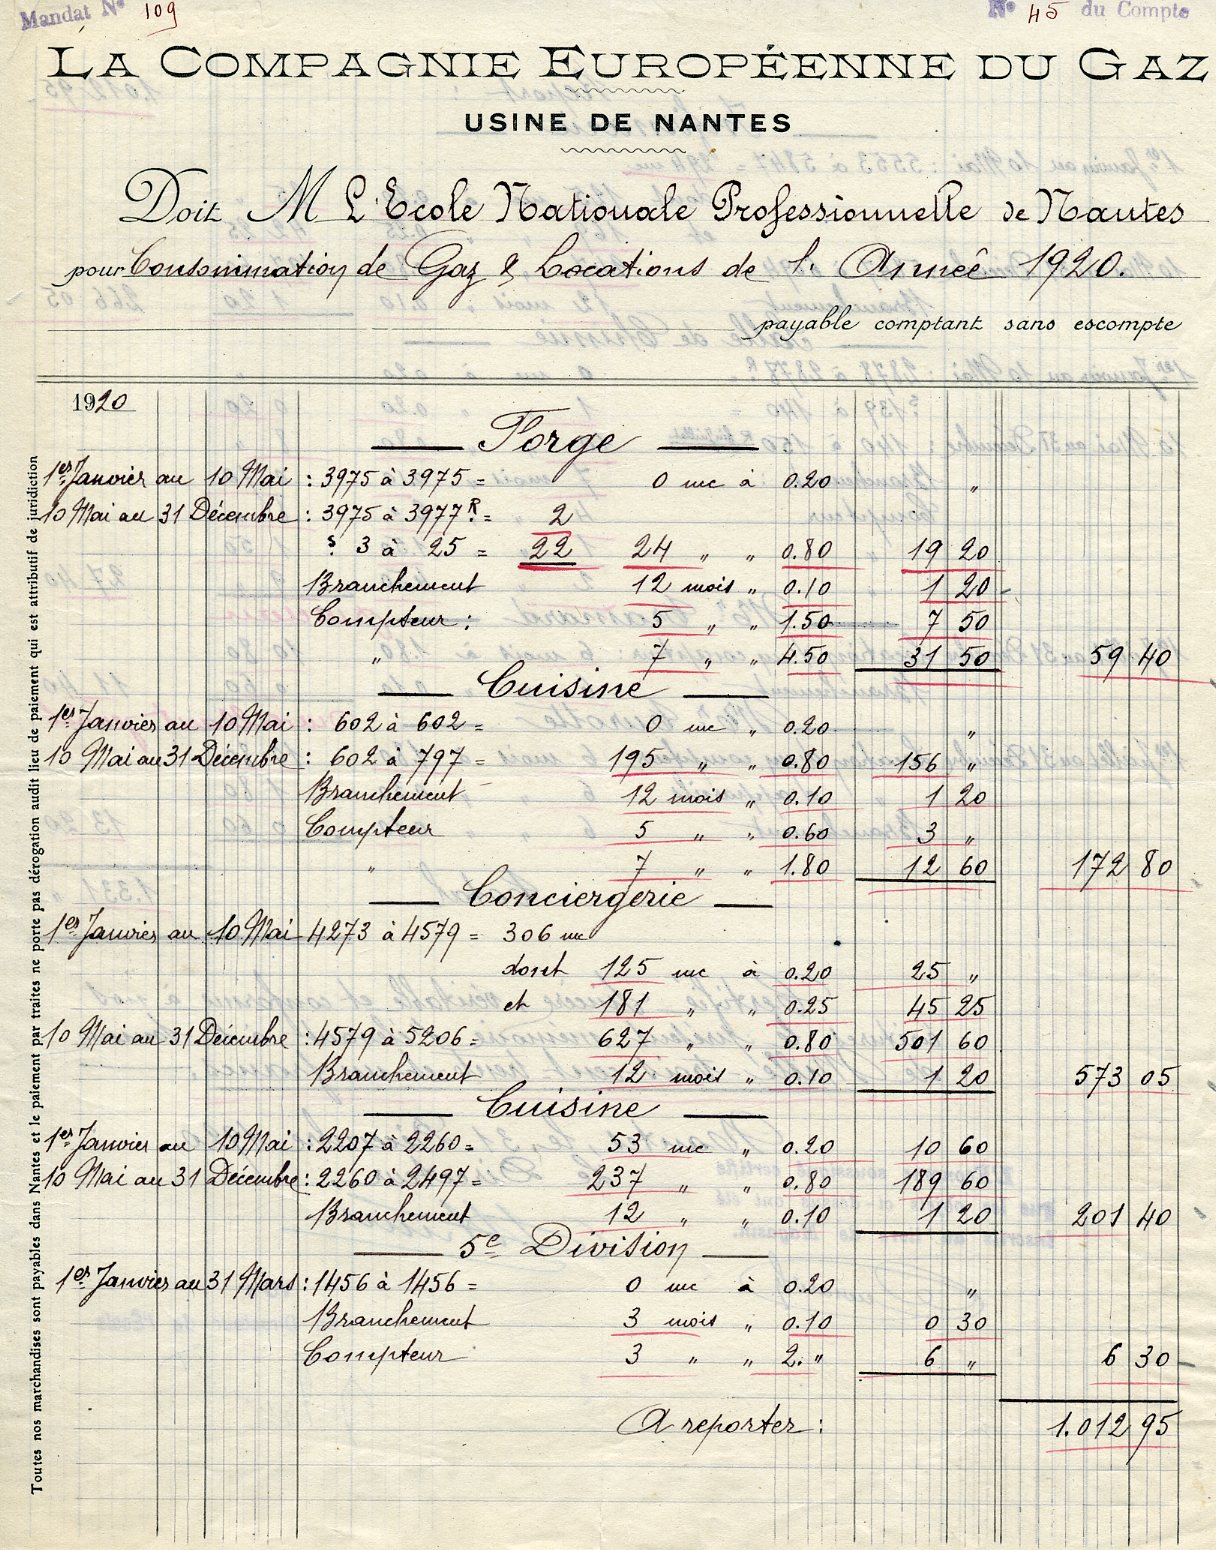 Mandat N° 109
N° 45 du Compte
LA COMPAGNIE EUROPÉENNE DU GAZ
USINE DE NANTES
Doit M L'Ecole Nationale Professionnelle de Nantes
pour Consommation de Gaz & Locations de l'Année 1920.
payable comptant sans escompte
1920
Forge
1er Janvier au 10 Mai : 3975 à 3975 = 0 mc à 0.20 "
10 Mai au 31 Décembre : 3975 à 3977 R. = 2
s. 3 à 25 = 22 24 " " 0.80 19 20
Branchement 12 mois " 0.10 1 20
Compteur : 5 " " 1.50 7 50
" 7 " " 4.50 31 50 59 40
Cuisine
1er Janvier au 10 Mai : 602 à 602 = 0 mc " 0.20 "
10 Mai au 31 Décembre : 602 à 797 = 195 " " 0.80 156 "
Branchement 12 mois " 0.10 1 20
Compteur 5 " " 0.60 3 "
" 7 " " 1.80 12 60 172 80
Conciergerie
1er Janvier au 10 Mai 4273 à 4579 = 306 mc
dont 125 mc à 0.20 25 "
et 181 " " 0.25 45 25
10 Mai au 31 Décembre : 4579 à 5206 = 627 " " 0.80 501 60
Branchement 12 mois " 0.10 1 20 573 05
Cuisine
1er Janvier au 10 Mai : 2207 à 2260 = 53 mc " 0.20 10 60
10 Mai au 31 Décembre : 2260 à 2497 = 237 " " 0.80 189 60
Branchement 12 " " 0.10 1 20 201 40
5e Division
1er Janvier au 31 Mars : 1456 à 1456 = 0 mc à 0.20 "
Branchement 3 mois " 0.10 0 30
Compteur 3 " " 2. " 6 " 6 30
A reporter : 1.012 95
Toutes nos marchandises sont payables dans Nantes et le paiement par traites ne porte pas dérogation audit lieu de paiement qui est attributif de juridiction